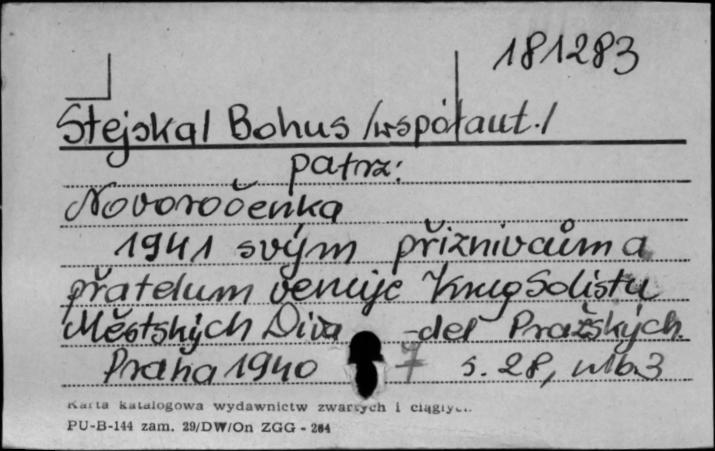 181283
Stejskal Bohus /współaut./
patrz:
Novoročenka
1941 svým přiznivcům a
přatelum venuje Krug Solistu
Městských Diva del Pražských.
Praha 1940 7 s. 28, ulb.3
Karta katalogowa wydawnictw zwartych i ciągłych.
PU-B-144 zam. 29/DW/On ZGG - 264